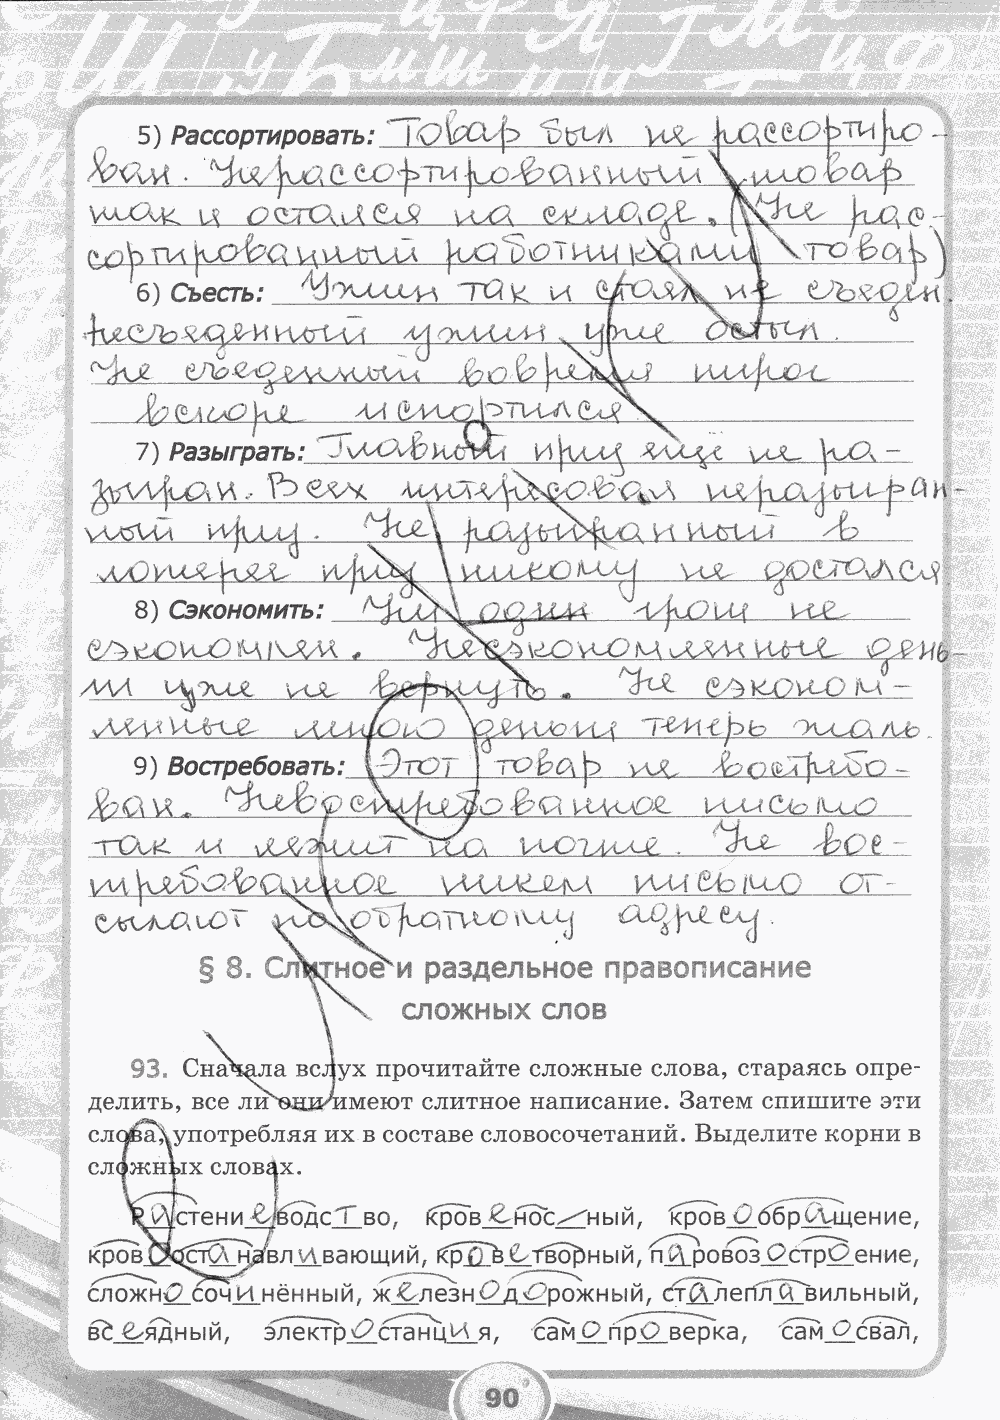 5) Рассортировать: Товар был не рассортиро-
ван. Нерассортированный товар
так и остался на складе. (Не рас-
сортированный работниками товар)
6) Съесть: Ужин так и стоял не съеден.
Несъеденный ужин уже остыл.
Не съеденный вовремя пирог
вскоре испортился
7) Разыграть: Главный приз ещё не ра-
зыгран. Всех интересовал неразыгран-
ный приз. Не разыгранный в
лотерее приз никому не достался
8) Сэкономить: Ни один грош не
сэкономлен. Несэкономленные день-
ги уже не вернуть. Не сэконом-
ленные мною деньги теперь жаль.
9) Востребовать: Этот товар не востребо-
ван. Невостребованное письмо
так и лежит на почте. Не вос-
требованное никем письмо от-
сылают по обратному адресу.
§ 8. Слитное и раздельное правописание
сложных слов
93. Сначала вслух прочитайте сложные слова, стараясь опре-
делить, все ли они имеют слитное написание. Затем спишите эти
слова, употребляя их в составе словосочетаний. Выделите корни в
сложных словах.
Растениеводство, кровеносный, кровообращение,
кровоостанавливающий, кроветворный, паровозостроение,
сложносочинённый, железнодорожный, сталеплавильный,
всеядный, электростанция, самопроверка, самосвал,
90